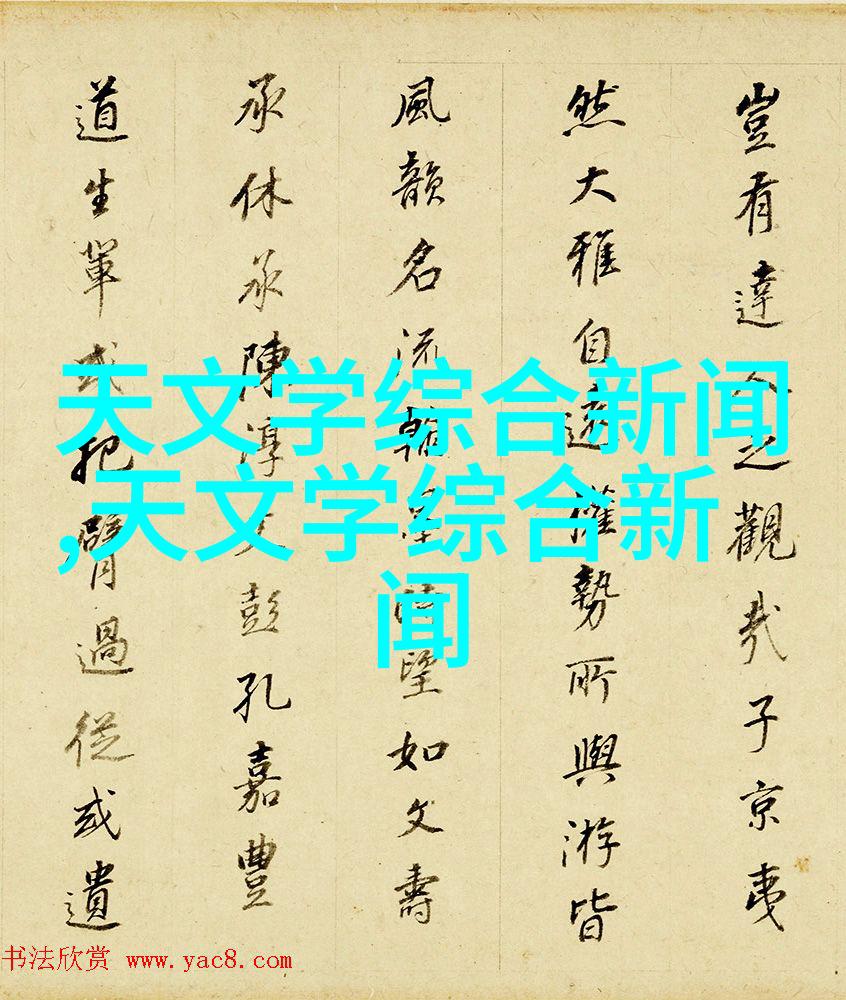 豈有達人之觀哉子京夷
然大雅自遠權勢所與游皆
風韻名流翰墨時望如文壽
承休承陳淳文彭孔嘉豐
道生軰或把臂過從或遺
天文学综合新闻
,天文学综合新
闻
书法欣赏 www.yac8.com